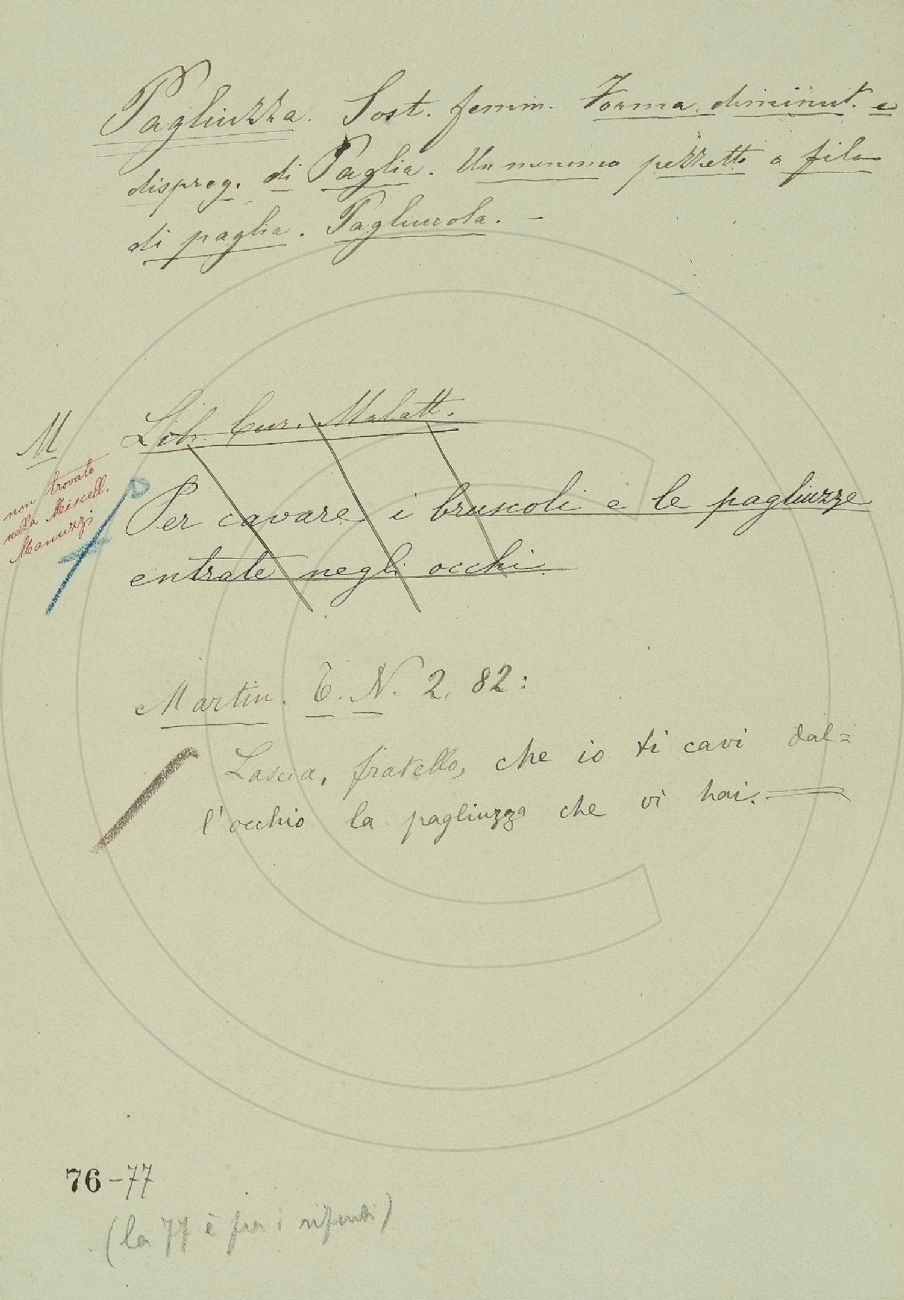 Pagliuzza. Sost. femm. Forma diminut. e
dispreg. di Paglia. Un menomo pezzetto o filo
di paglia. Pagliuola. –
M
Lib. Cur. Malatt.
non trovato
nella Miscell.
Manuzzi
Per cavare i bruscoli e le pagliuzze
entrate negli occhi.
Martin. T. N. 2. 82:
Lascia, fratello, che io ti cavi dal=
l'occhio la pagliuzza che vi hai.
76-77
(la 77 è fra i rifiuti)